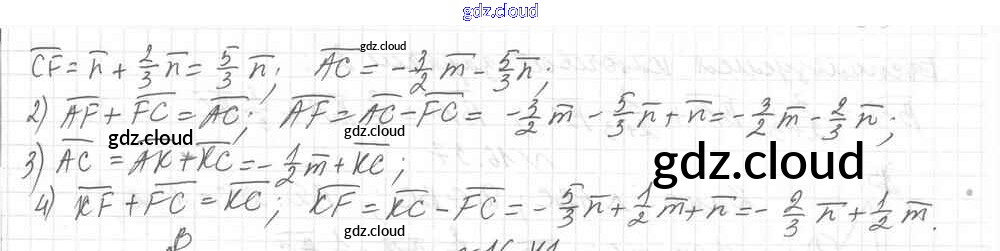 gdz.cloud
gdz.cloud
CF̅ = n̅ + 2/3 n̅ = 5/3 n̅; AC̅ = -3/2 m̅ - 5/3 n̅;
2) AF̅ + FC̅ = AC̅; AF̅ = AC̅ - FC̅ = -3/2 m̅ - 5/3 n̅ + n̅ = -3/2 m̅ - 2/3 n̅;
gdz.cloud gdz.cloud
3) AC̅ = AK̅ + KC̅ = -1/2 m̅ + KC̅;
gdz.cloud
4) KF̅ + FC̅ = KC̅; KF̅ = KC̅ - FC̅ = -5/3 n̅ + 1/2 m̅ + n̅ = -2/3 n̅ + 1/2 m̅.
gdz.cloud
B